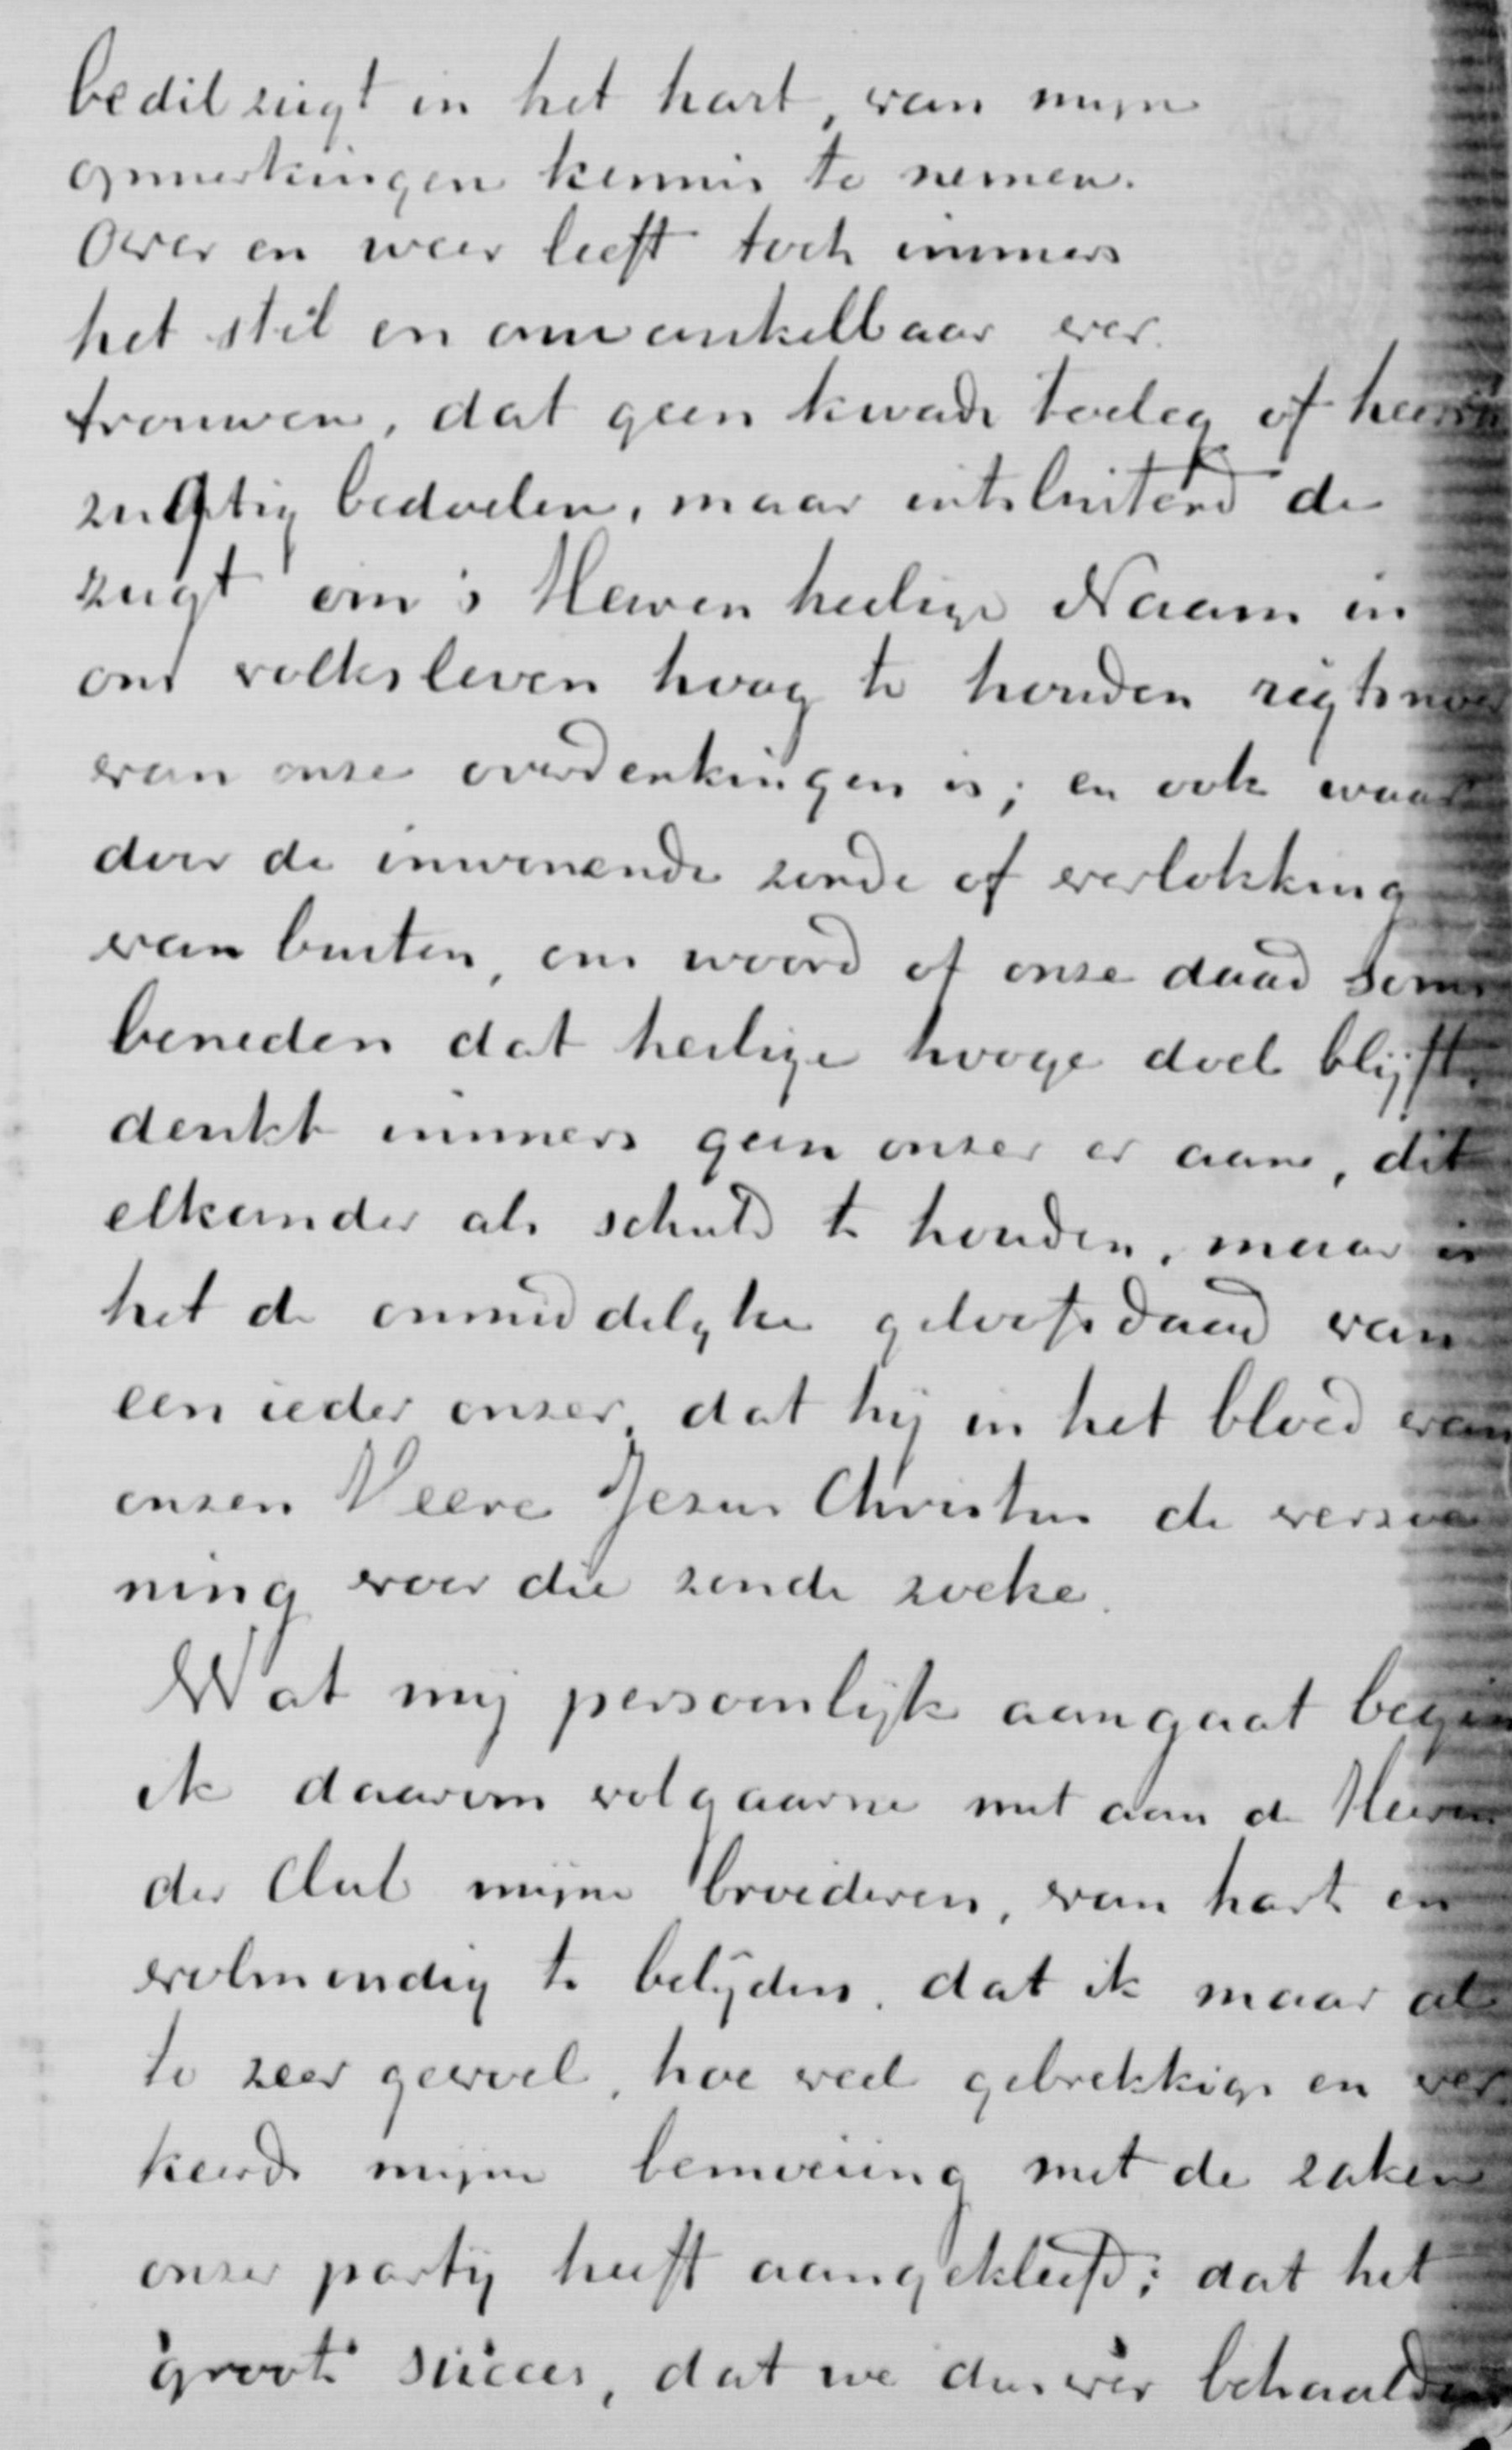 bedilzugt in het hart, van mijn
opmerkingen kennis te nemen.
Over en weer leeft toch immers
het stil en onwankelbaar ver-
trouwen, dat geen kwade toeleg of
zugtig bedoelen, maar uitsluitend de
zugt om 's Heeren heilige Naam in
ons volksleven hoog te houden rigtsnoer
van onse overdenkingen is; en ook waar
door de inwonende zonde of verlokking
van buiten, ons woord of onse daad soms
beneden dat heilige hooge doel blijft,
denkt immers geen onser er aan, dit
elkander als schuld te houden, maar is
het de onmiddelyke geloofsdaad van
een ieder onser, dat hij in het bloed van
onsen Heere Jezus Christus de verzoe
ning voor die zonde zoeke.
Wat mij persoonlijk aangaat begin
ik daarom volgaarne met aan de Heeren
der Club mijne broederen, van harte en
volmondig te belijden, dat ik maar al
te zeer gevoel, hoe veel gebrekkigs en ver-
keerds mijne bemoeiing met de zaken
onser partij heeft aangekleefd; dat het
groote succes, dat we dusver behaalden